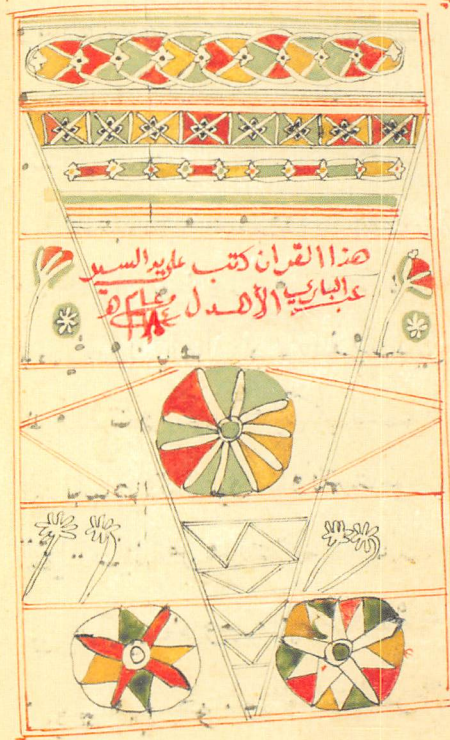 هذا القران كتب علي يد السيد
عبد الباري الأهدل